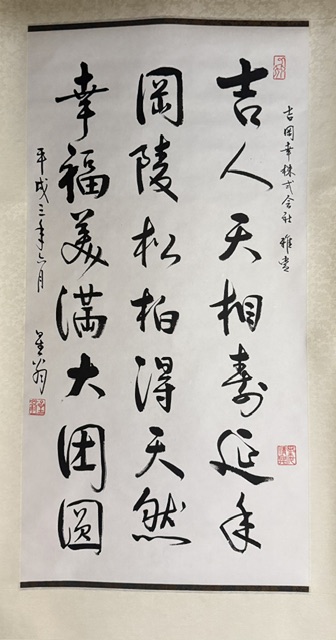 吉岡幸株式会社 雅賞
吉人天相壽延年
岡陵松柏得天然
幸福美滿大団圓
平成三年六月
星翁